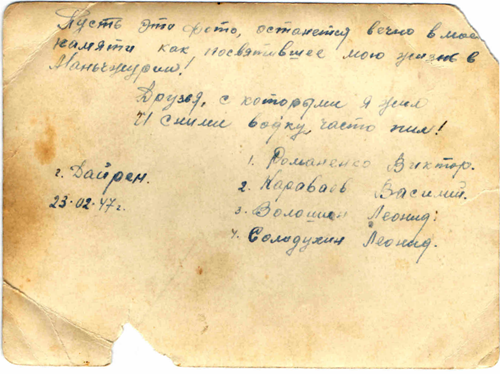 Пусть это фото, останется вечно в мое
памяти как посвятившее мою жизнь в
Маньчжурии!
Друзья, с которыми я жил
И с ними водку, часто пил!
1. Романенко Виктор.
г. Дайрен.
2. Караваев Василий.
23.02.47г.
3. Волошин Леонид.
4. Солодухин Леонид.